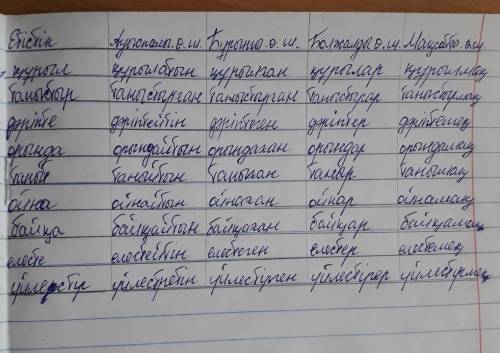 Етістік Ауыспалы ө.ш. Бұрынғы ө.ш. Болжалды ө.ш. Мақсатты ө.ш.
құрыл құрылатын құрылған құрылар құрылмақ
таныстыр таныстырған таныстырған таныстырар таныстырмақ
дріпте дріптейтін дріптеген дріптер дріптемек
орында орындайтын орындаған орындар орындамақ
таны танитын таныған таныр танымақ
ойна ойнайтын ойнаған ойнар ойнамақ
байқа байқайтын байқаған байқар байқамақ
елесте елестейтін елестеген елестер елестемек
үйлестір үйлестіретін үйлестірген үйлестірер үйлестірмек